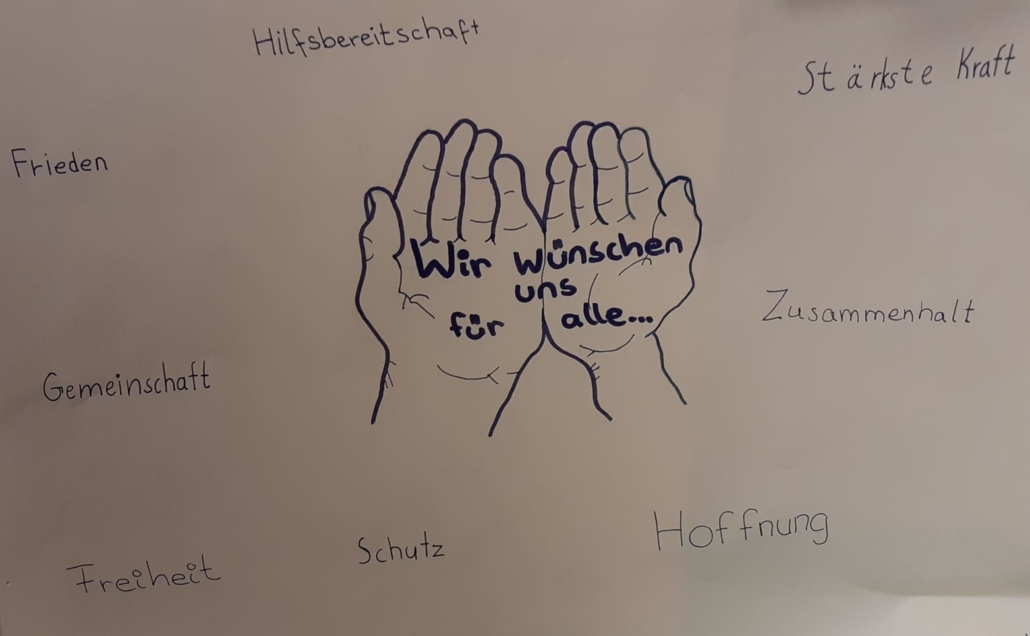 Hilfsbereitschaft
Stärkste Kraft
Frieden
Wir wünschen
uns
für alle...
Zusammenhalt
Gemeinschaft
Hoffnung
Schutz
Freiheit